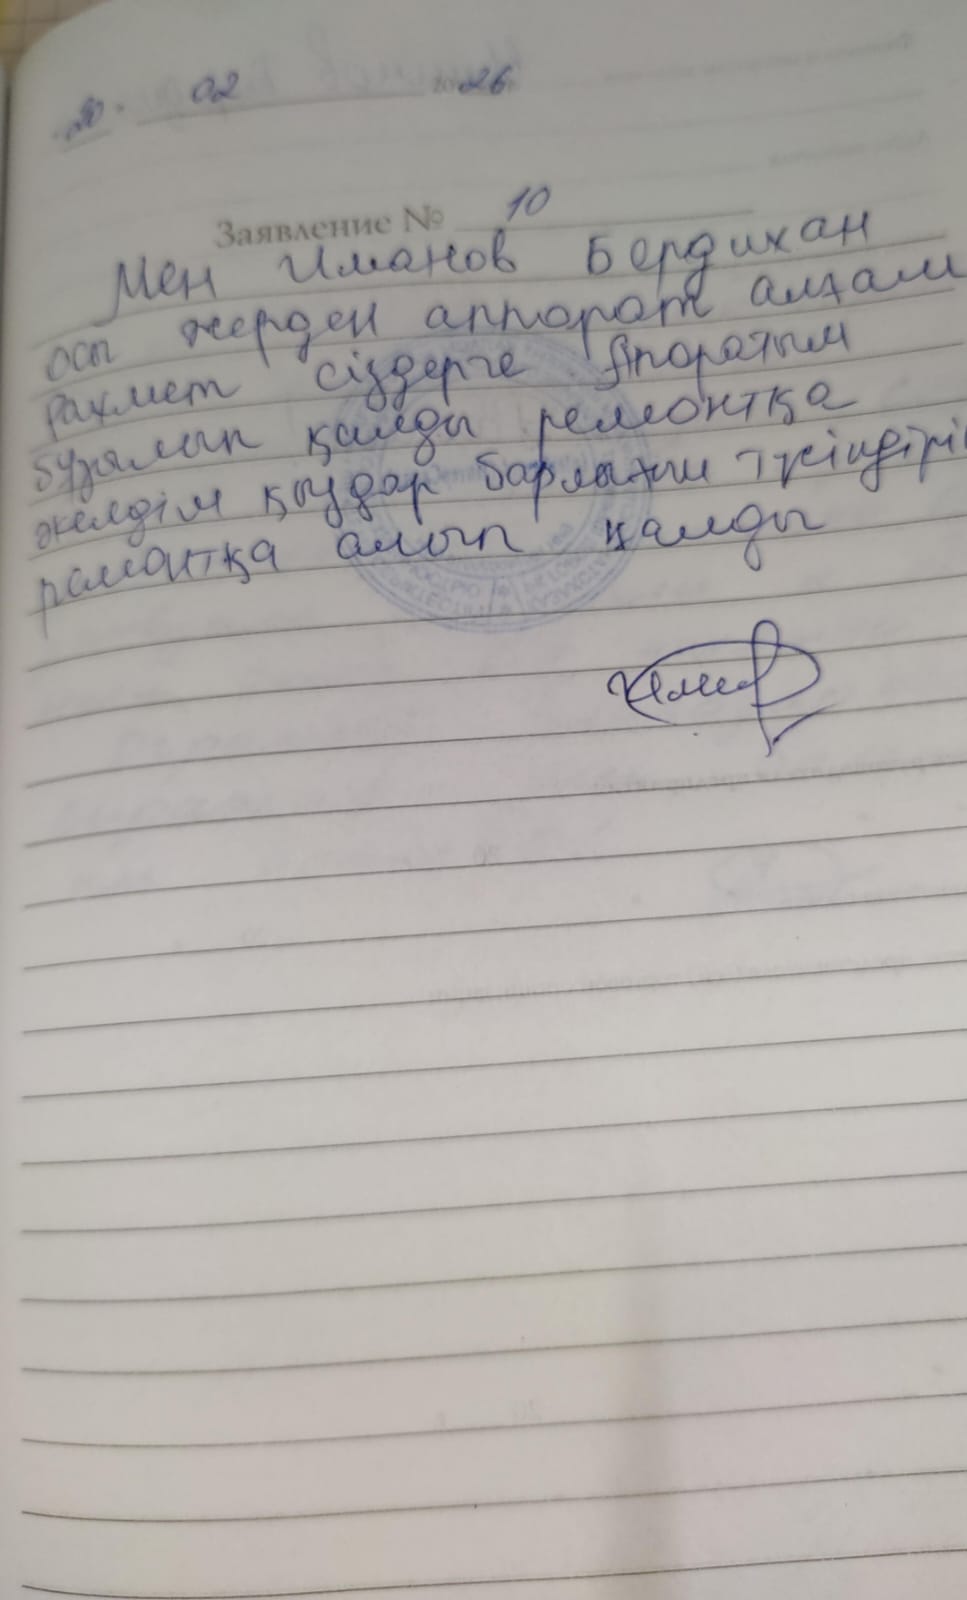 20. 02 2026г
Заявление № 10
Мен Иманов Бердихан
осы жерден аппорат алғам
рахмет сіздерге Аппоратым
бұзылып қалды ремонтқа
әкелдім қыздар барлығын түсіндіріп
ремонтқа алып қалды